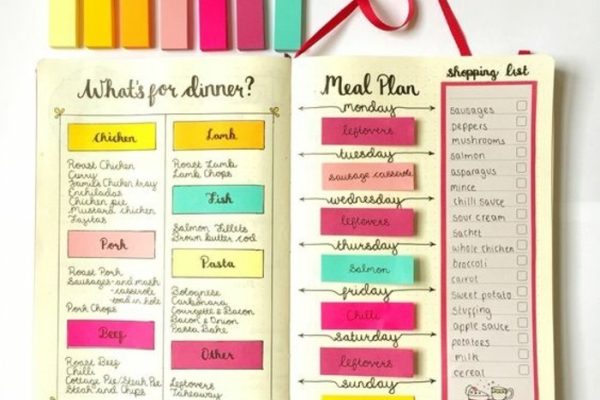 What's for dinner?
Chicken
Roast Chicken
Curry
James Chicken tray
Enchiladas
Chicken pie
Mustard chicken
Fajitas
Pork
Roast Pork
Sausages - and mash
- casserole
- toad in hole
Pork Chops
Beef
Roast Beef
Chilli
Cottage Pie/Steak Pie
Steak and Chips
Lamb
Roast Lamb
Lamb Chops
Fish
Salmon Fillets
Brown butter cod
Pasta
Bolognese
Carbonara
Courgette & Bacon
Bacon & Onion
Pasta Bake
Other
Leftovers
Takeaway
Meal Plan
monday
leftovers
tuesday
sausage casserole
wednesday
leftovers
thursday
salmon
friday
Chilli
saturday
leftovers
sunday
shopping list
sausages
peppers
mushrooms
salmon
asparagus
mince
chilli sauce
sour cream
sachet
whole chicken
broccoli
carrot
sweet potato
stuffing
apple sauce
potatoes
milk
cereal